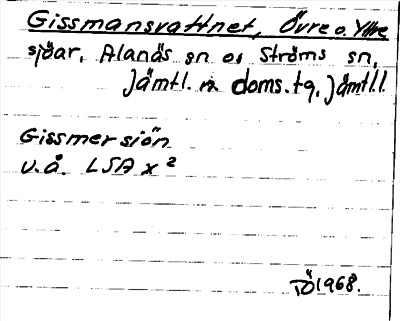 Gissmansvattnet, Övre o. Yttre
sjöar, Alanäs sn o. Ströms sn,
Jämtl. n. doms. tg, Jämtl.l.
Gissmersjön
u.å. LSA x 2
TÖ 1968.